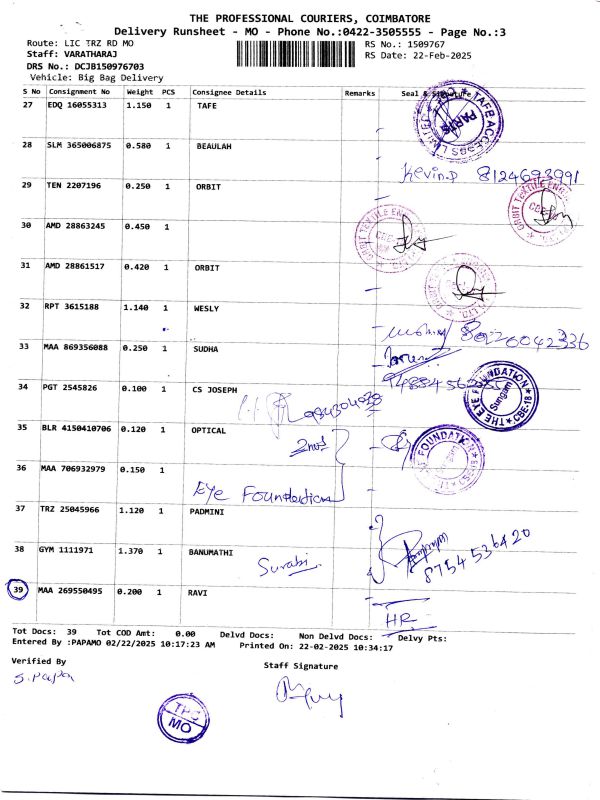 THE PROFESSIONAL COURIERS, COIMBATORE
Delivery Runsheet - MO - Phone No.:0422-3505555 - Page No.:3
Route: LIC TRZ RD MO RS No.: 1509767
Staff: VARATHARAJ RS Date: 22-Feb-2025
DRS No.: DCJB150976703
Vehicle: Big Bag Delivery
S No Consignment No Weight PCS Consignee Details Remarks Seal & Signature
27 EDQ 16055313 1.150 1 TAFE
TAFE ACCESS LIMITED PARTS
28 SLM 365006875 0.580 1 BEAULAH
Kevin.P 8124693991
29 TEN 2207196 0.250 1 ORBIT
ORBIT TEXTILE
30 AMD 28863245 0.450 1
ORBIT TEXTILE
31 AMD 28861517 0.420 1 ORBIT
32 RPT 3615188 1.140 1 WESLY
33 MAA 869356088 0.250 1 SUDHA
34 PGT 2545826 0.100 1 CS JOSEPH
THE EYE FOUNDATION CBE-18 Sungam
35 BLR 4150410706 0.120 1 OPTICAL
FOUNDATION
36 MAA 706932979 0.150 1
Eye Foundation
37 TRZ 25045966 1.120 1 PADMINI
38 GYM 1111971 1.370 1 BANUMATHI
Surabi
8754536420
39 MAA 269550495 0.200 1 RAVI
HR
Tot Docs: 39 Tot COD Amt: 0.00 Delvd Docs: Non Delvd Docs: Delvy Pts:
Entered By :PAPAMO 02/22/2025 10:17:23 AM Printed On: 22-02-2025 10:34:17
Verified By Staff Signature
S. Papa
TPC
MO